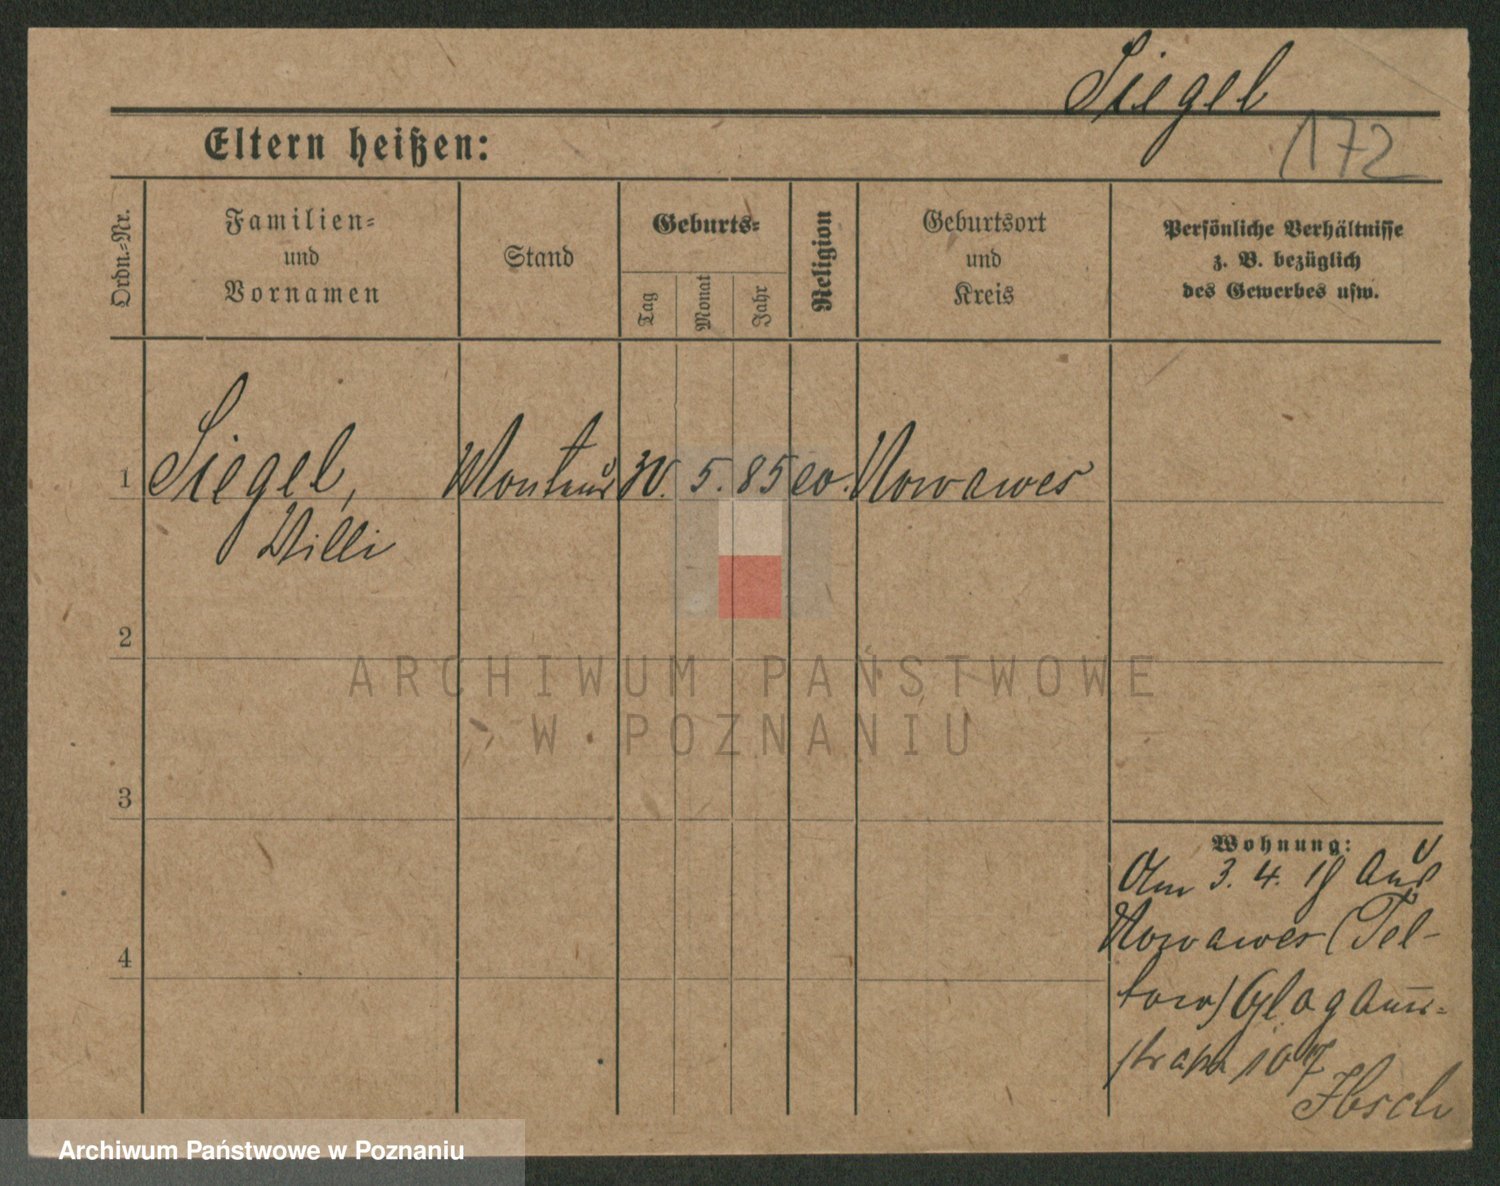 Siegel
172
Eltern heißen:
Ordn.-Nr.
Familien-
und
Vornamen
Stand
Geburts-
Tag
Monat
Jahr
Religion
Geburtsort
und
Kreis
Persönliche Verhältnisse
z. B. bezüglich
des Gewerbes usw.
1 Siegel, Monteur 30. 5. 85 ev. Nowawes
Willi
2
3
4
ARCHIWUM PAŃSTWOWE
W POZNANIU
Wohnung:
Am 3. 4. 18 aus
Nowawes (Tel-
tow) Glogauer-
straße 107
Archiwum Państwowe w Poznaniu